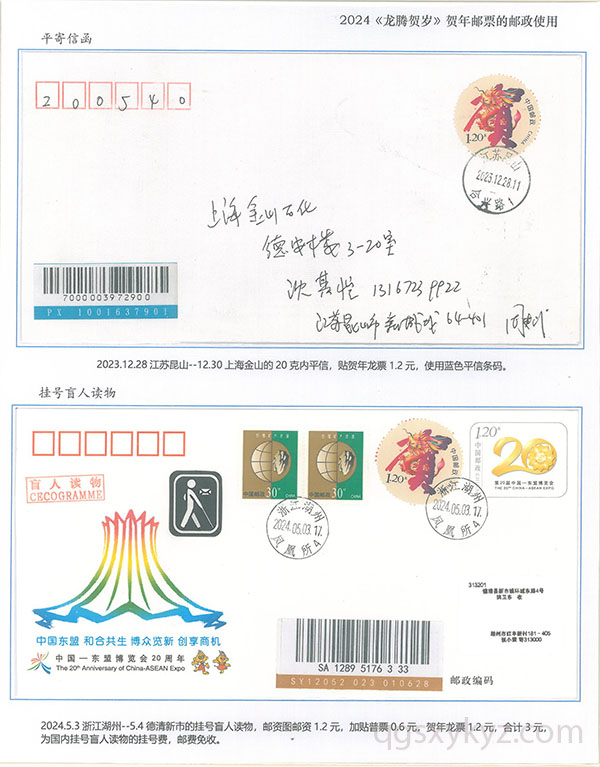 2024《龙腾贺岁》贺年邮票的邮政使用
平寄信函
200540
中国邮政
CHINA
1.20元
江苏昆山
2023.12.28.11
上海金山石化
德安楼3-20室
沈其恺 13167239922
64-401
7000003972900
PX 1001637901
2023.12.28江苏昆山--12.30上海金山的20克内平信，贴贺年龙票1.2元，使用蓝色平信条码。
挂号盲人读物
盲人读物
CECOGRAMME
中国邮政
30分
CHINA
中国邮政
30分
CHINA
中国邮政
CHINA
1.20元
1.20元
中国邮政
20
第20届中国—东盟博览会
THE 20TH CHINA-ASEAN EXPO
浙江湖州
2024.05.03.17
凤凰所4
浙江湖州
2024.05.03.17
凤凰所4
中国东盟 和合共生 博众览新 创享商机
中国—东盟博览会20周年
The 20th Anniversary of China-ASEAN Expo
313201
德清县新市镇环城东路4号
收
湖州市红丰新村181-405
313000
SA 1289 5176 3 33
SY12052 023 010628
邮政编码
2024.5.3浙江湖州--5.4德清新市的挂号盲人读物，邮资图邮资1.2元，加贴普票0.6元，贺年龙票1.2元，合计3元，
为国内挂号盲人读物的挂号费，邮费免收。
qgsxykyz.com